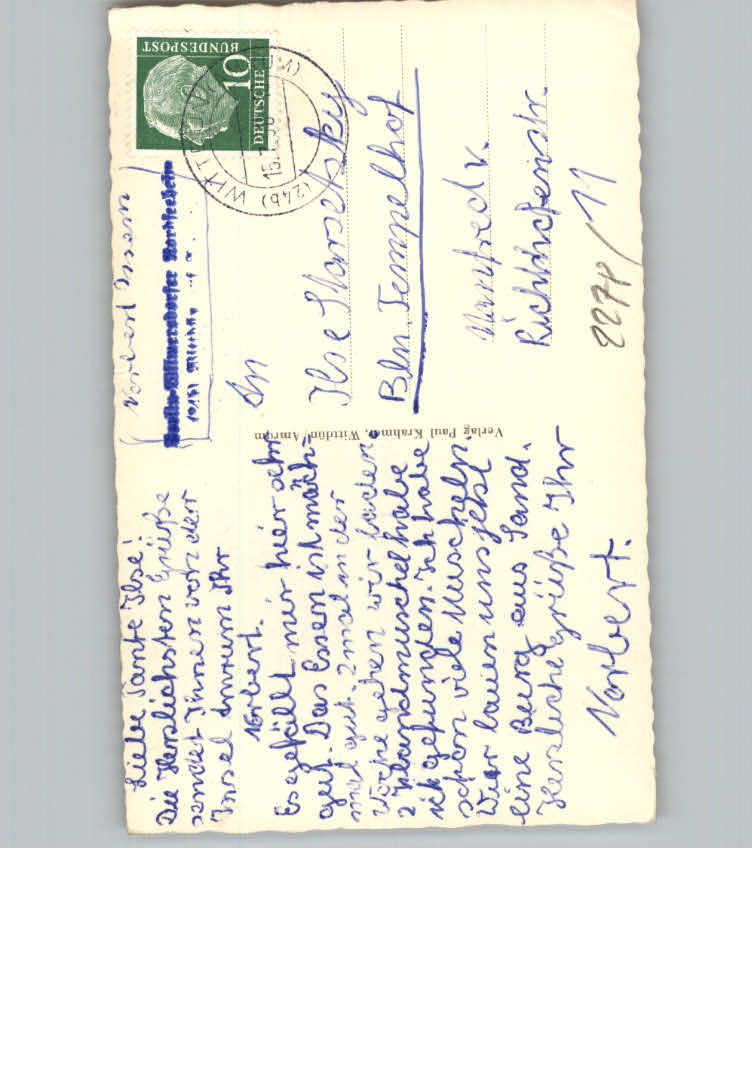 Liebe Tante Ilse!
Die Herzlichsten Grüße
sendet Ihnen von der
Insel Amrum Ihr
Norbert.
Es gefällt mir hier sehr
gut. Das Essen ist mäch-
mal gut. 2 mal in der
Woche gehen wir baden.
2 Pfandmuschel habe
ich gefunden. Ich habe
schon viele Muscheln.
Wier bauen uns jetzt
eine Burg aus Sand.
Herzliche Grüße Ihr
Norbert.
Verlag Paul Krahmer, Wittdün/Amrum
Norbert
Berlin-Wilmersdorfer Nordseeheim
(24b) Wittdün
DEUTSCHE
BUNDESPOST
10
(24b) WITTDÜN
15.
An
Ilse
Bln. Tempelhof
Manfred v.
Richthofenstr.
11